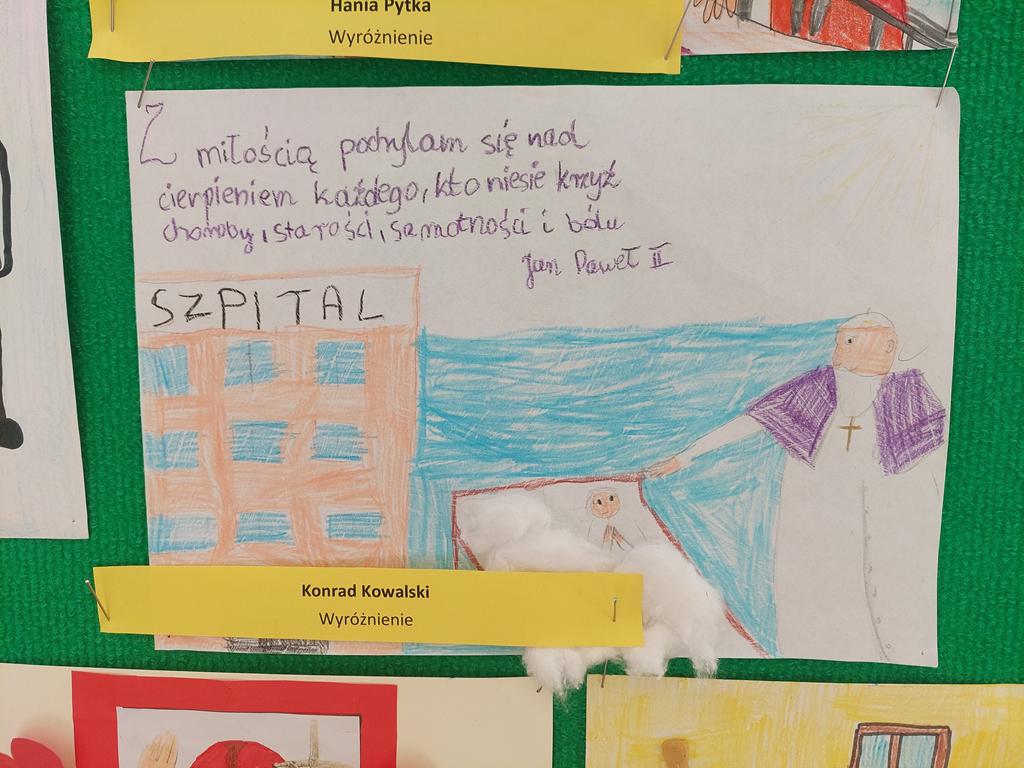 Hania Pytka
Wyróżnienie
Z miłością pochylam się nad
cierpieniem każdego, kto niesie krzyż
choroby, starości, samotności i bólu
Jan Paweł II
SZPITAL
Konrad Kowalski
Wyróżnienie